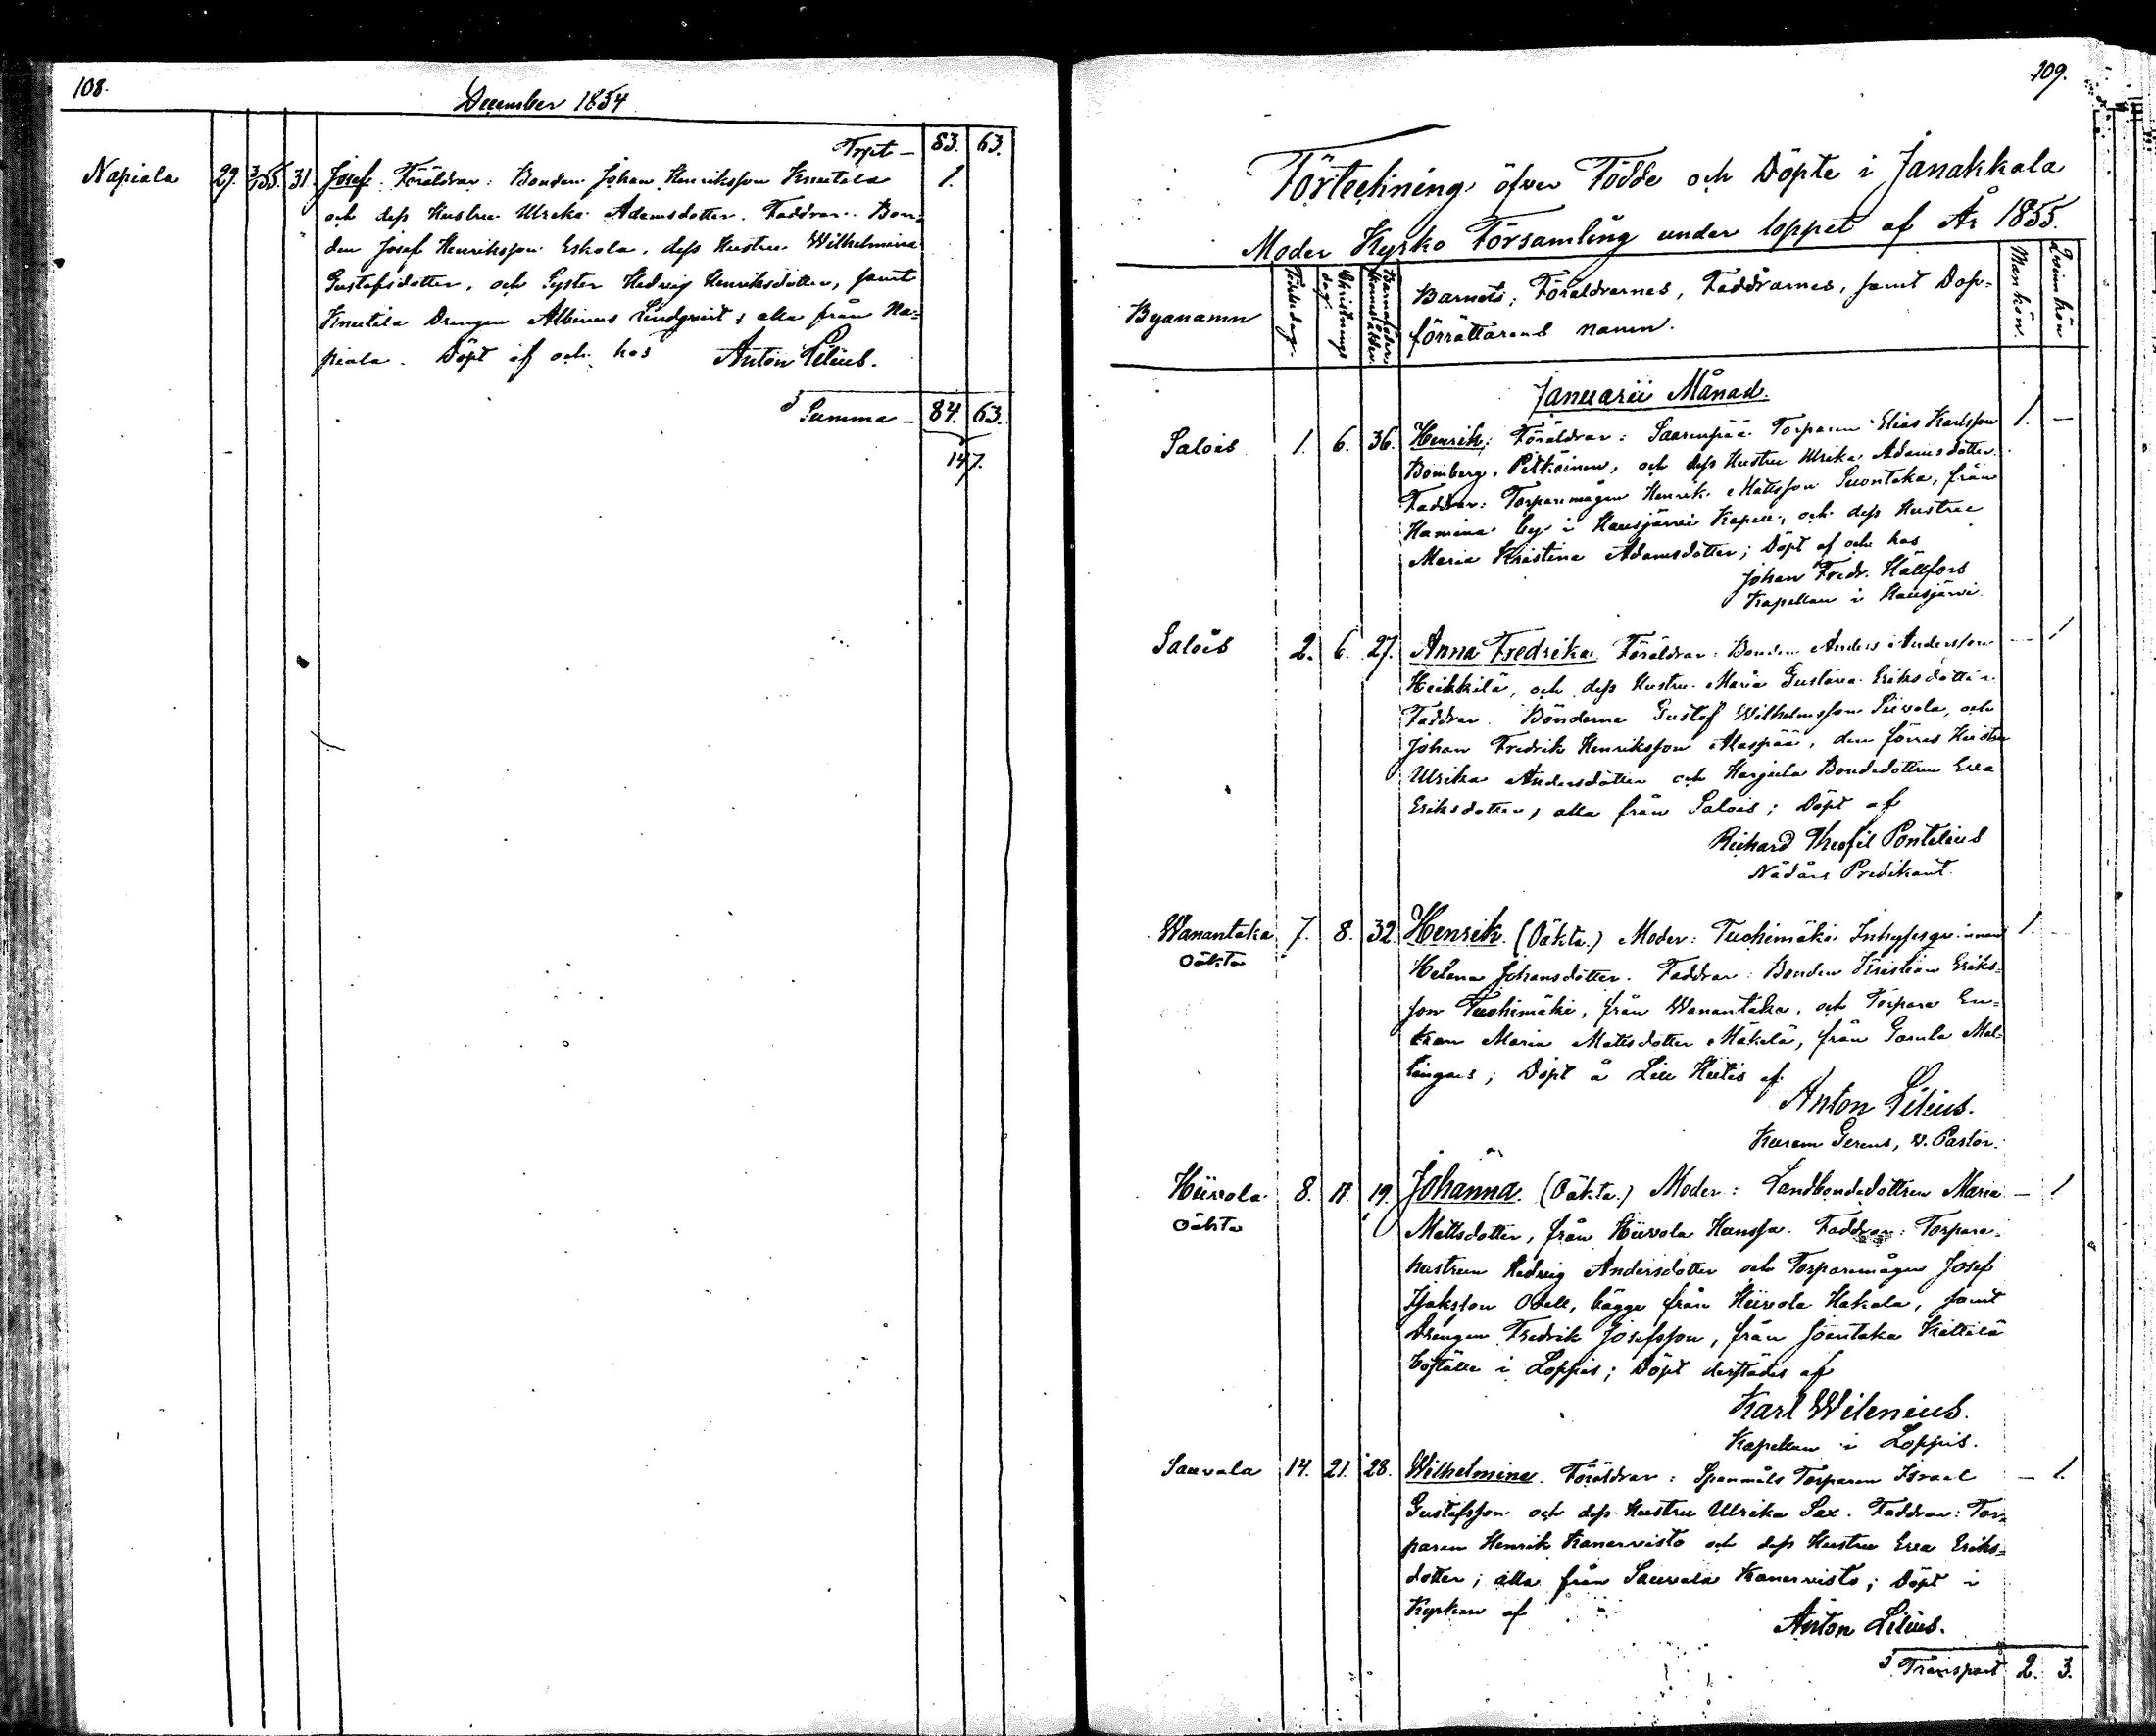 108.
December 1854
Trpt – 83. 63.
Napiala 29. 3/1 55. 31. Josef. Föräldrar: Bonden Johan Henriksson Knuutila 1.
och dess Hustru Ulrika Adamsdotter. Faddrar: Bon=
den Josef Henriksson Eskola, dess Hustru Wilhelmina
Gustafsdotter, och Syster Hedvig Henriksdotter, samt
Knuutila Drengen Albinus Lindqvist, alla från Na=
piala. Döpt af och hos Anton Lilius.
Summa – 84. 63.
147.
109.
Förteckning öfver Födde och Döpte i Janakkala
Moder Kyrko Församling under loppet af År 1855.
Byanamn Födelsedag. Christnings dag. Barnaföderskans ålder. Barnets, Föräldrarnes, Faddrarnes, samt Dop= Mankön. Qvinkön
förrättarens namn.
Januarii Månad.
Salois 1. 6. 36. Henrik; Föräldrar: Saarenpää Torparen Elias Karlsson 1. –
Bomberg, Pitkäinen, och dess Hustru Ulrika Adamsdotter.
Faddrar: Torparemågen Henrik Mattsson Suontaka, från
Hamina by i Hausjärvi Kapell, och dess Hustru
Maria Kristina Adamsdotter; Döpt af och hos
Johan Fredr. Hällfors
Kapellan i Hausjärvi.
Salois 2. 6. 27. Anna Fredrika Föräldrar: Bonden Anders Andersson – 1
Heikkilä, och dess Hustru Maria Gustava Eriksdotter.
Faddrar. Bönderne Gustaf Wilhelmsson Siivola, och
Johan Fredrik Henriksson Alaspää, den förres Hustru
Ulrika Andersdotter och Harjula Bondedottren Eva
Eriksdotter, alla från Salois; Döpt af
Richard Theofil Pontelius
Nådårs Predikant.
Wanantaka 7. 8. 32 Henrik. (Oäkta.) Moder: Tuohimäki Inhysesqvinnan 1.
Oäkta
Helena Johansdotter. Faddrar: Bonden Kristian Eriks=
son Tuohimäki, från Wanantaka, och Torpare En=
kan Maria Mattsdotter Mäkelä, från Gamla Mal=
lingars; Döpt å Lill Hietis af
Anton Lilius.
Kuram Gerens, v. Pastor.
Hiivola 8. 11. 19. Johanna. (Oäkta.) Moder: Landbondedottren Maria – 1
Oäkta
Mattsdotter, från Hiivola Hanssa. Faddrar: Torpare=
hustrun Hedvig Andersdotter och Torparemågen Josef
Isaksson Odell, bägge från Hiivola Hakala, samt
Drengen Fredrik Josefsson, från Joentaka Kättilä
Boställe i Loppis; Döpt derstädes af
Karl Wilenius.
Kapellan i Loppis.
Sauvala 14. 21. 28. Wilhelmina. Föräldrar: Spannmåls Torparen Israel – 1.
Gustafsson och dess Hustru Ulrika Sax. Faddrar: Tor=
paren Henrik Kanervisto och dess Hustru Eva Eriks=
dotter; alla från Sauvala Kanervisto; Döpt i
Kyrkan af
Anton Lilius.
Transport 2. 3.